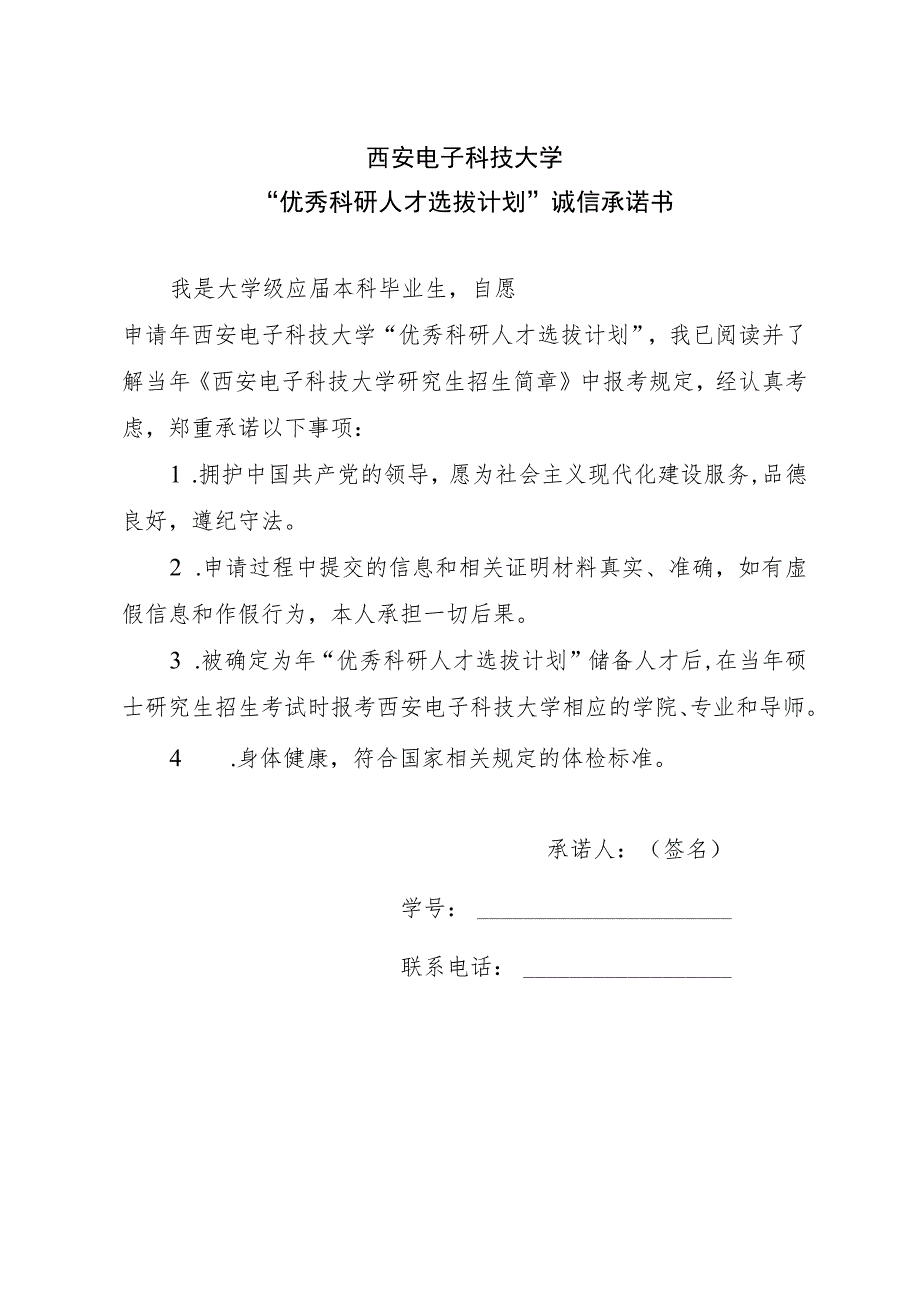 西安电子科技大学
“优秀科研人才选拔计划”诚信承诺书
我是大学级应届本科毕业生，自愿
申请年西安电子科技大学“优秀科研人才选拔计划”，我已阅读并了
解当年《西安电子科技大学研究生招生简章》中报考规定，经认真考
虑，郑重承诺以下事项：
1 .拥护中国共产党的领导，愿为社会主义现代化建设服务,品德
良好，遵纪守法。
2 .申请过程中提交的信息和相关证明材料真实、准确，如有虚
假信息和作假行为，本人承担一切后果。
3 .被确定为年“优秀科研人才选拔计划”储备人才后,在当年硕
士研究生招生考试时报考西安电子科技大学相应的学院、专业和导师。
4 .身体健康，符合国家相关规定的体检标准。
承诺人：（签名）
学号： ______________________
联系电话： __________________